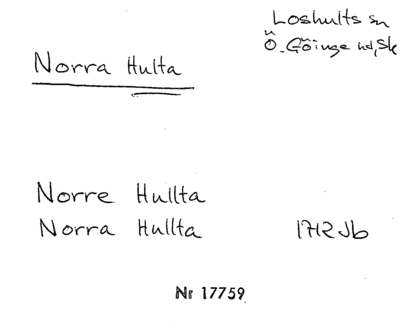 Loshults sn
Ö. Göinge hd, Sk
Norra Hulta
Norre Hullta
Norra Hullta 1712 Jb
Nr 17759